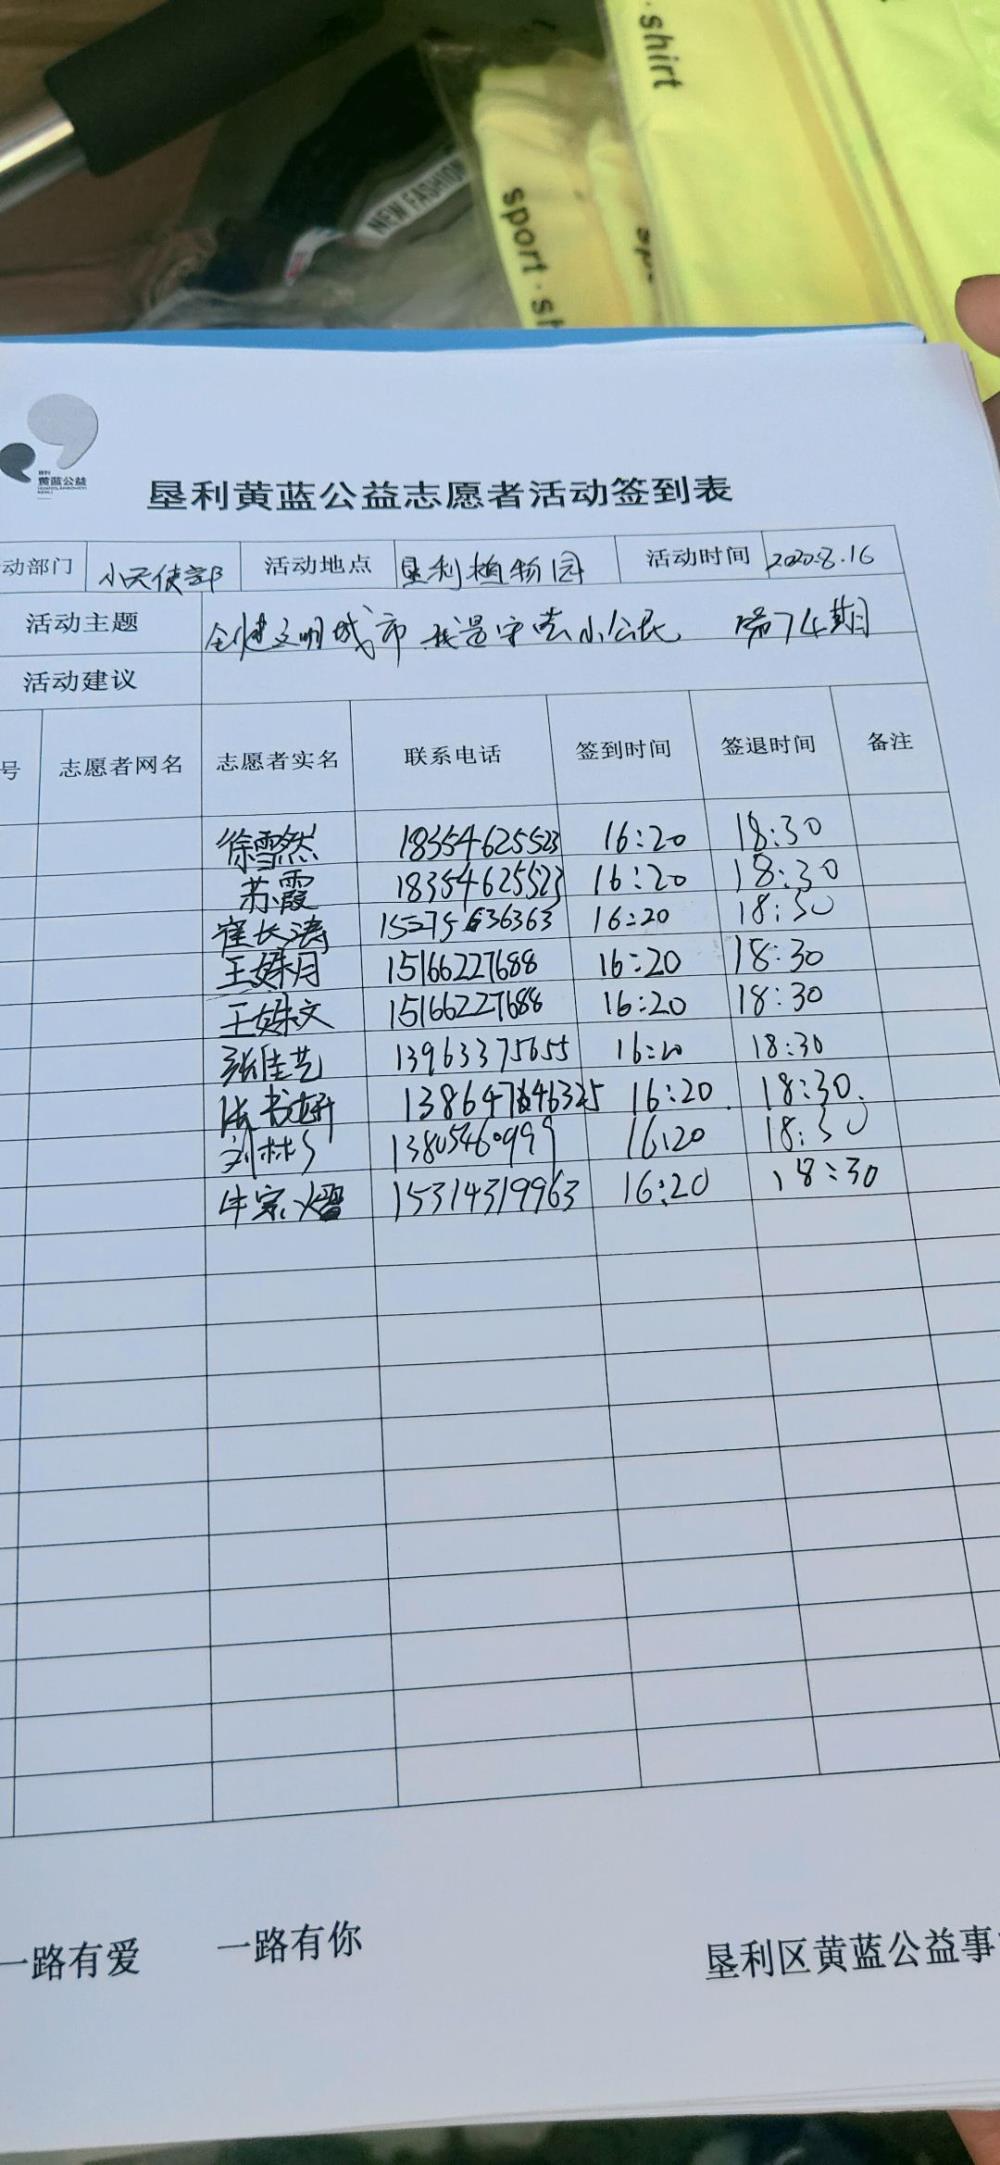 shirt
sport · sh
sp
NEW FASHION
黄蓝公益
垦利黄蓝公益志愿者活动签到表
动部门 小天使部 活动地点 垦利植物园 活动时间 2020.8.16
活动主题 创建文明城市 我是守法小公民 第74期
活动建议
号 志愿者网名 志愿者实名 联系电话 签到时间 签退时间 备注
徐雪然 18354625523 16:20 18:30
苏霞 18354625523 16:20 18:30
崔长涛 15275636363 16:20 18:30
王姝月 15166227688 16:20 18:30
王姝文 15166227688 16:20 18:30
张佳艺 13963375655 16:20 18:30
16:20 18:30.
13805460999 16:20 18:30
牛宗熠 15314319963 16:20 18:30
一路有爱 一路有你 垦利区黄蓝公益事